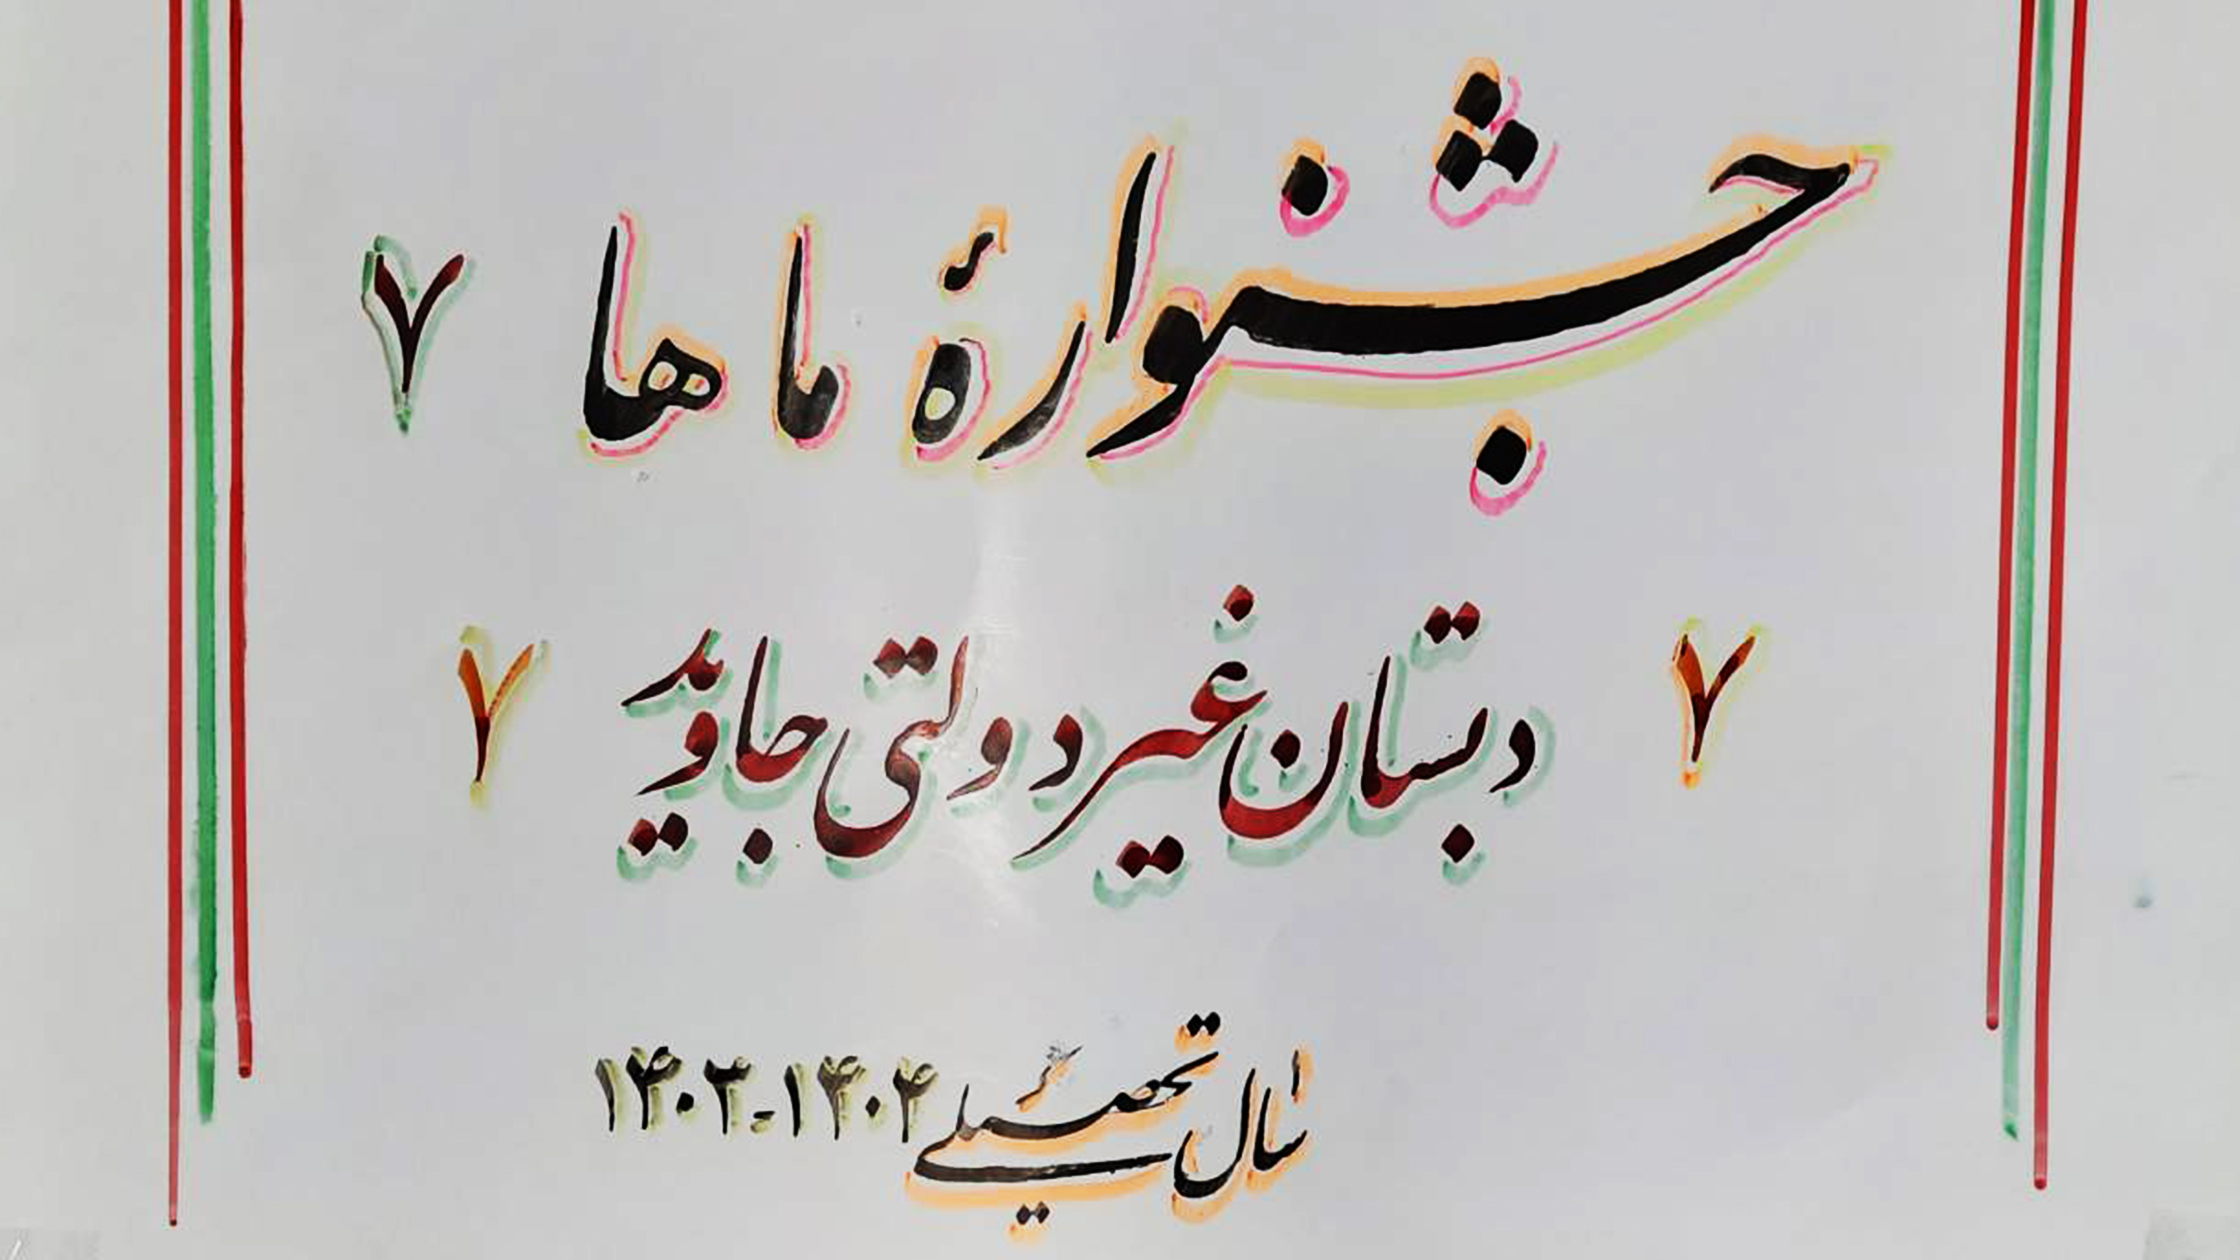 جشنوارهٔ ما ها ۷
۷ دبستان غیر دولتی جاوید ۷
سال تحصیلی ۱۴۰۴-۱۴۰۳